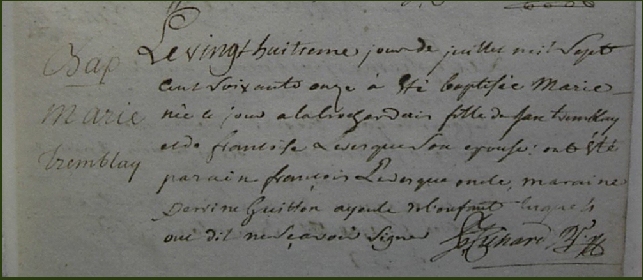 Bap
marie
tremblay
Le vingt huitieme jour de juillet mil Sept
cent Soixante onze à été baptisée Marie
née ce jour a la fille de Jean tremblay
et de francoise Levesque Son epouse: ont été
parain françois Levesque oncle, maraine
Perrine Guitton ayeule de lenfant lesquels
ont dit ne Sçavoir Signer